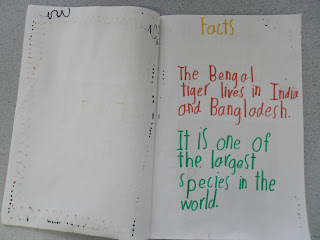 Facts
The Bengal
tiger lives in India
and Bangladesh.
It is one of
the largest
species in the
world.